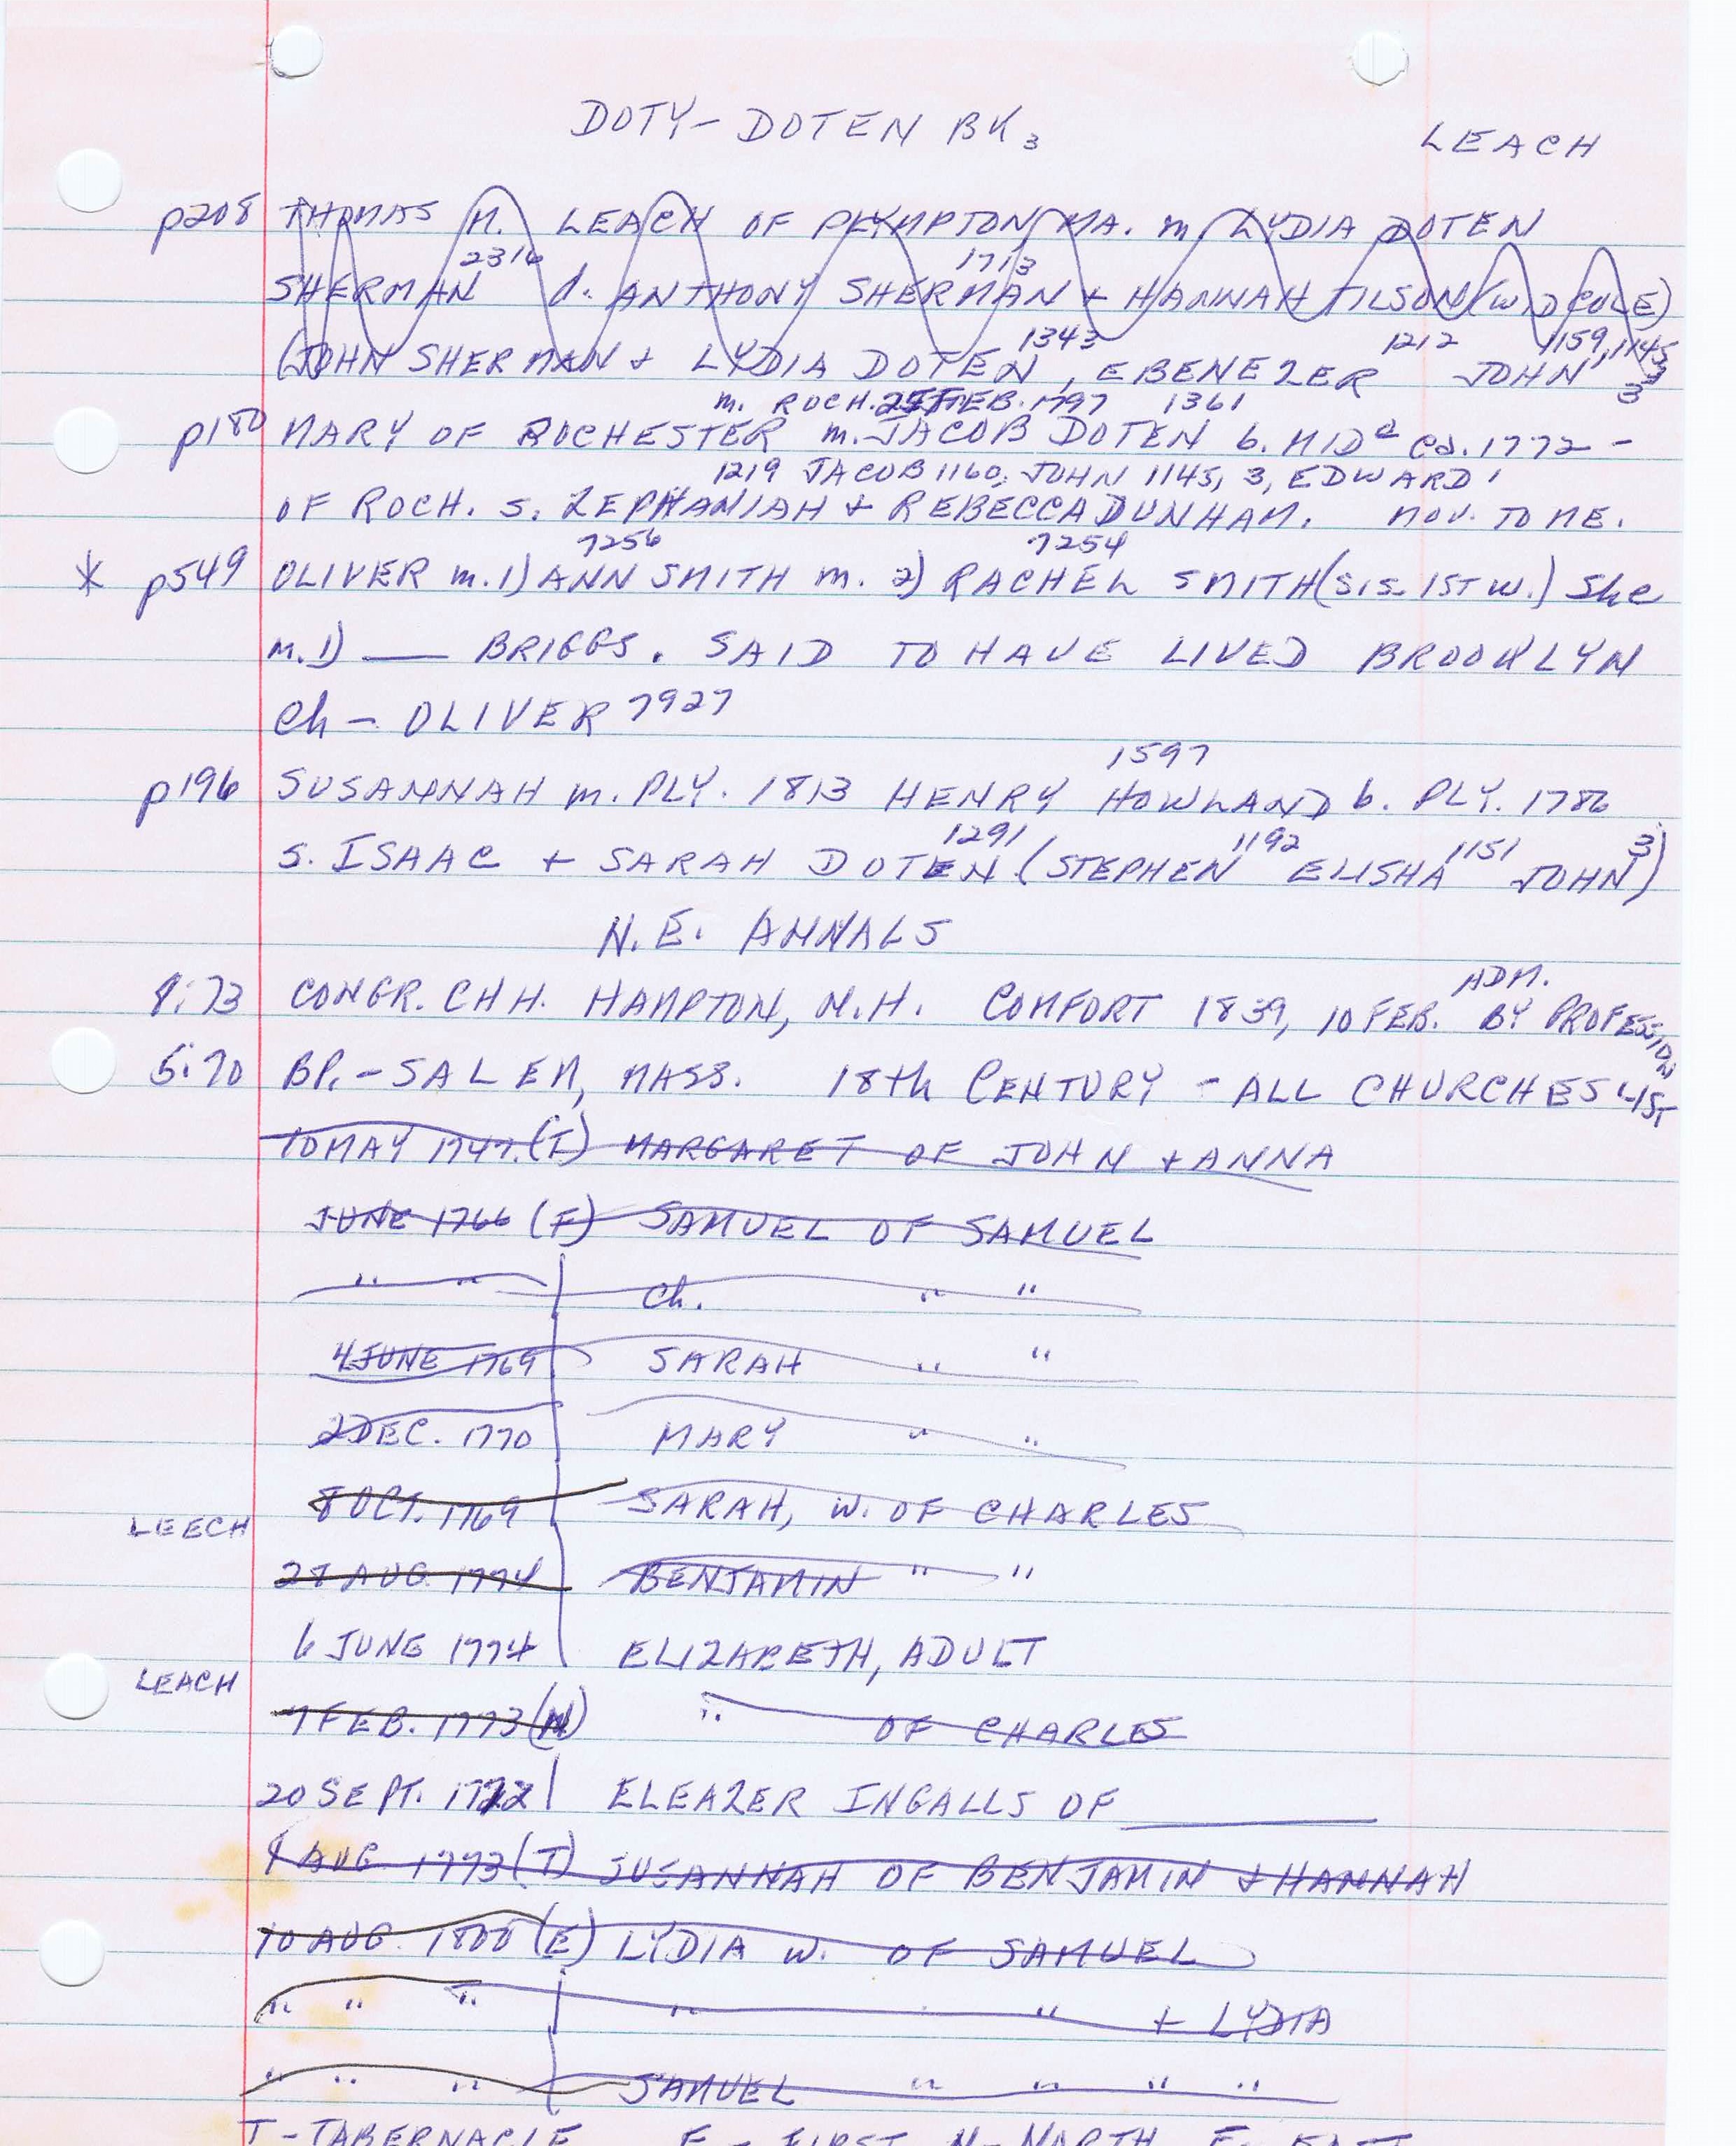 DOTY-DOTEN BK 3
LEACH
p208 THOMAS M. LEACH OF PLYMPTON, MA. m. LYDIA DOTEN
2316 1713
SHERMAN d. ANTHONY SHERMAN + HANNAH TILSON (WID COLE)
1343 1212 1159, 1145
(JOHN SHERMAN + LYDIA DOTEN, EBENEZER JOHN 3
m. ROCH. FEB. 1797 1361
p180 MARY OF ROCHESTER m. JACOB DOTEN b. MID^e ca. 1772 -
1219 JACOB 1160, JOHN 1145, 3, EDWARD 1
OF ROCH. s. ZEPHANIAH + REBECCA DUNHAM. MOV. TO ME.
7256 7254
* p549 OLIVER m. 1) ANN SMITH m. 2) RACHEL SMITH (SIS. 1ST W.) She
m. 1) — BRIGGS. SAID TO HAVE LIVED BROOKLYN
Ch - OLIVER 7927
1597
p196 SUSANNAH m. PLY. 1813 HENRY HOWLAND b. PLY. 1786
1291 1192 1151 3
s. ISAAC + SARAH DOTEN (STEPHEN ELISHA JOHN)
N.E. ANNALS
ADM.
8:73 CONGR. CHH. HAMPTON, N.H. COMFORT 1839, 10 FEB. BY PROFESSION
5:70 BP. - SALEM, MASS. 18th CENTURY - ALL CHURCHES LIST
10 MAY 1747. (T) MARGARET OF JOHN + ANNA
JUNE 1766 (F) SAMUEL OF SAMUEL
" " Ch. " "
4 JUNE 1769 SARAH " "
2 DEC. 1770 MARY " "
8 OCT. 1769 SARAH, W. OF CHARLES
LEECH
28 AUG. 1774 BENJAMIN " "
6 JUNE 1774 ELIZABETH, ADULT
LEACH
7 FEB. 1773 (N) " OF CHARLES
20 SEPT. 1772 ELEAZER INGALLS OF ____
8 AUG. 1773 (T) SUSANNAH OF BENJAMIN & HANNAH
10 AUG. 1800 (E) LYDIA W. OF SAMUEL
" " " " " + LYDIA
" " " SAMUEL " " " "
T-TABERNACLE F-FIRST N-NORTH E-EAST